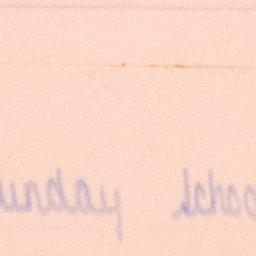 unday Schoo